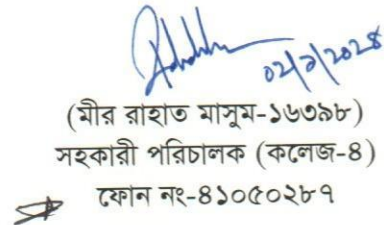 ০২/৯/২০২৪
(মীর রাহাত মাসুম-১৬৩৯৮)
সহকারী পরিচালক (কলেজ-৪)
ফোন নং-৪১০৫০২৮৭